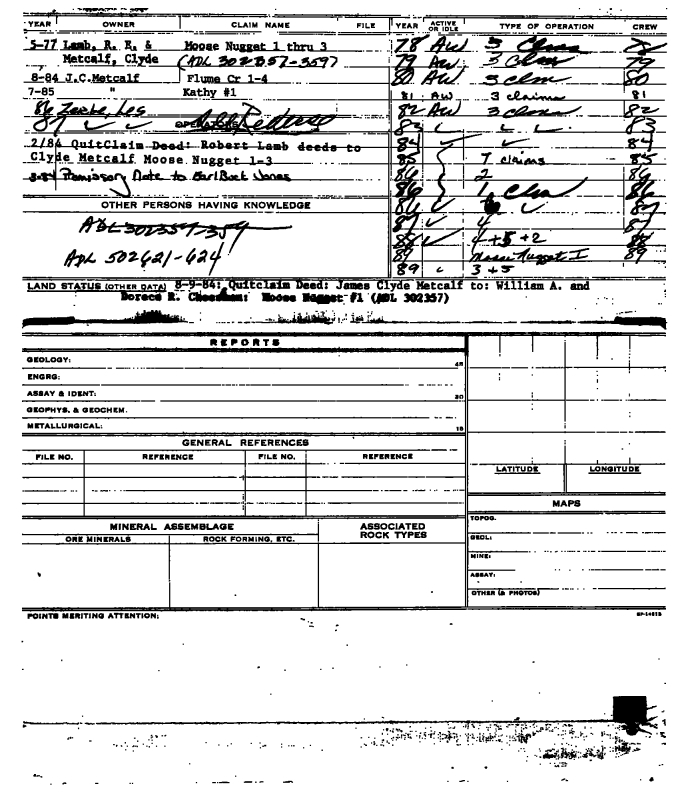 YEAR OWNER CLAIM NAME FILE YEAR ACTIVE OR IDLE TYPE OF OPERATION CREW
5-77 Lamb, R. E. & Moose Nugget 1 thru 3 78 AW 3 Clms 78
Metcalf, Clyde (ADL 302357-359) 79 AW 3 Clm 79
8-84 J.C.Metcalf Flume Cr 1-4 80 AW 3 clm 80
7-85 " Kathy #1 81 AW 3 claims 81
86 Les 82 AW 3 82
87 ✓ ✓ 83 83
2/84 QuitClaim Deed: Robert Lamb deeds to 84 ✓ 84
Clyde Metcalf Moose Nugget 1-3 85 7 claims 85
8-84 Promissory Note to Earl Jones 86 2 86
86 1 Clm 86
OTHER PERSONS HAVING KNOWLEDGE 86 ✓ ✓ 87
ADL 302357-359 87 ✓ 4 87
88 ✓ 4+5+2 88
ADL 502621-624 89 Moose Nugget I 89
89 3+5
LAND STATUS (OTHER DATA) 8-9-84: Quitclaim Deed: James Clyde Metcalf to: William A. and
Doreen R. Cheeseman: Moose Nugget #1 (ADL 302357)
REPORTS
GEOLOGY: 45
ENGRG:
ASSAY & IDENT: 30
GEOPHYS. & GEOCHEM.
METALLURGICAL: 15
GENERAL REFERENCES
FILE NO. REFERENCE FILE NO. REFERENCE
LATITUDE LONGITUDE
MAPS
TOPOG.
GEOL:
MINE:
ASSAY:
OTHER (& PHOTOS)
MINERAL ASSEMBLAGE ASSOCIATED ROCK TYPES
ORE MINERALS ROCK FORMING, ETC.
POINTS MERITING ATTENTION: